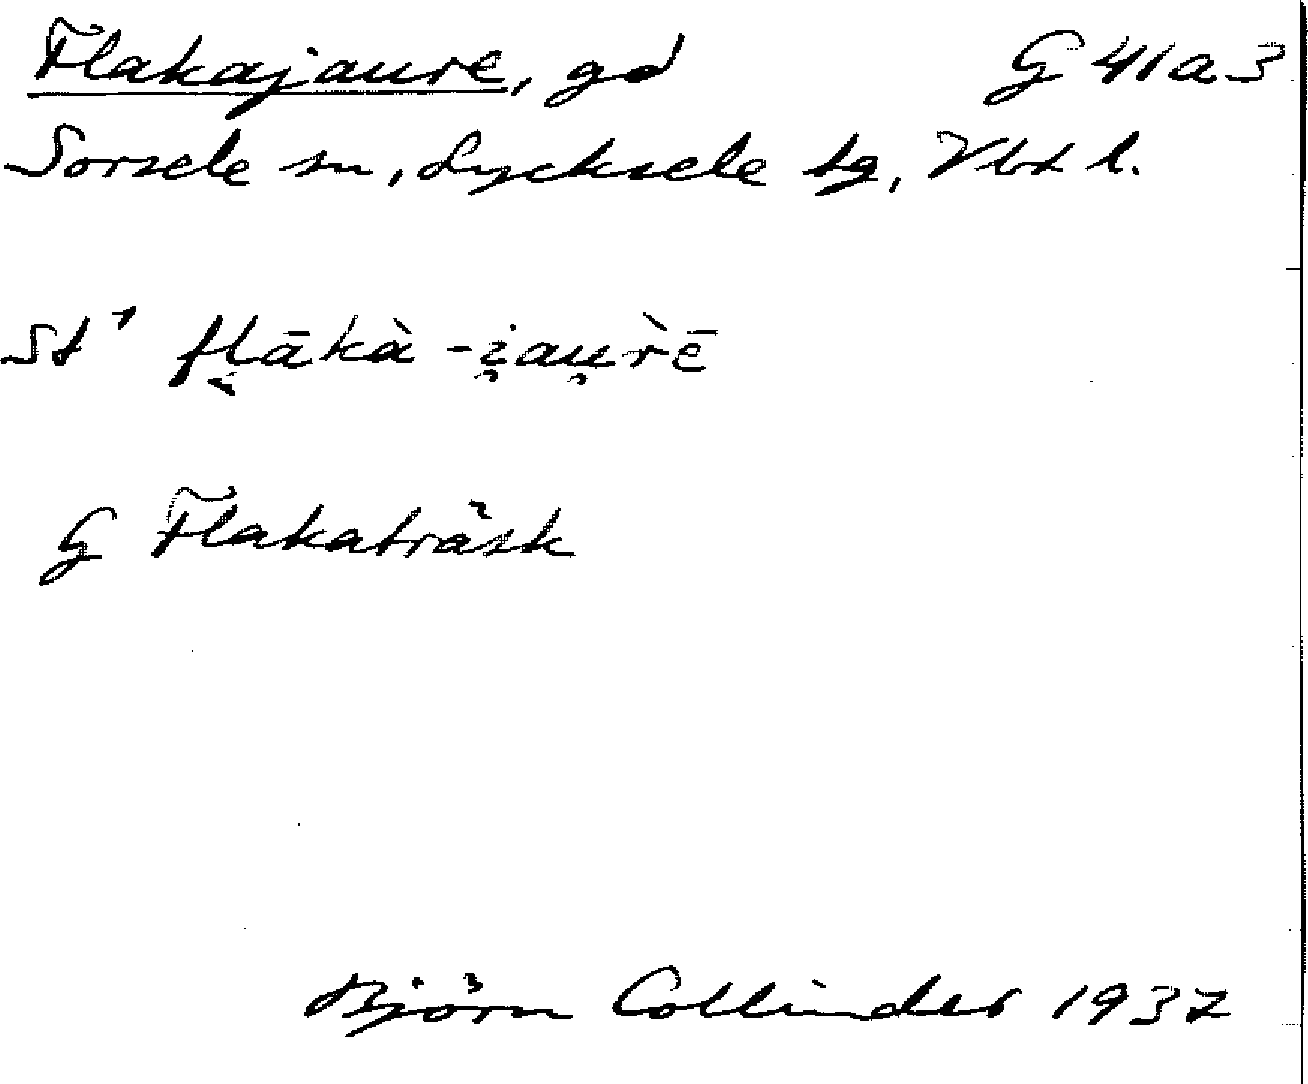 Flakajaure, gd G 41 a 3
Sorsele sn, Lycksele tg, Vbt l.
St¹ fl̬ākà -i̯au̯r̀ē
G Flakaträsk
Björn Collinder 1937